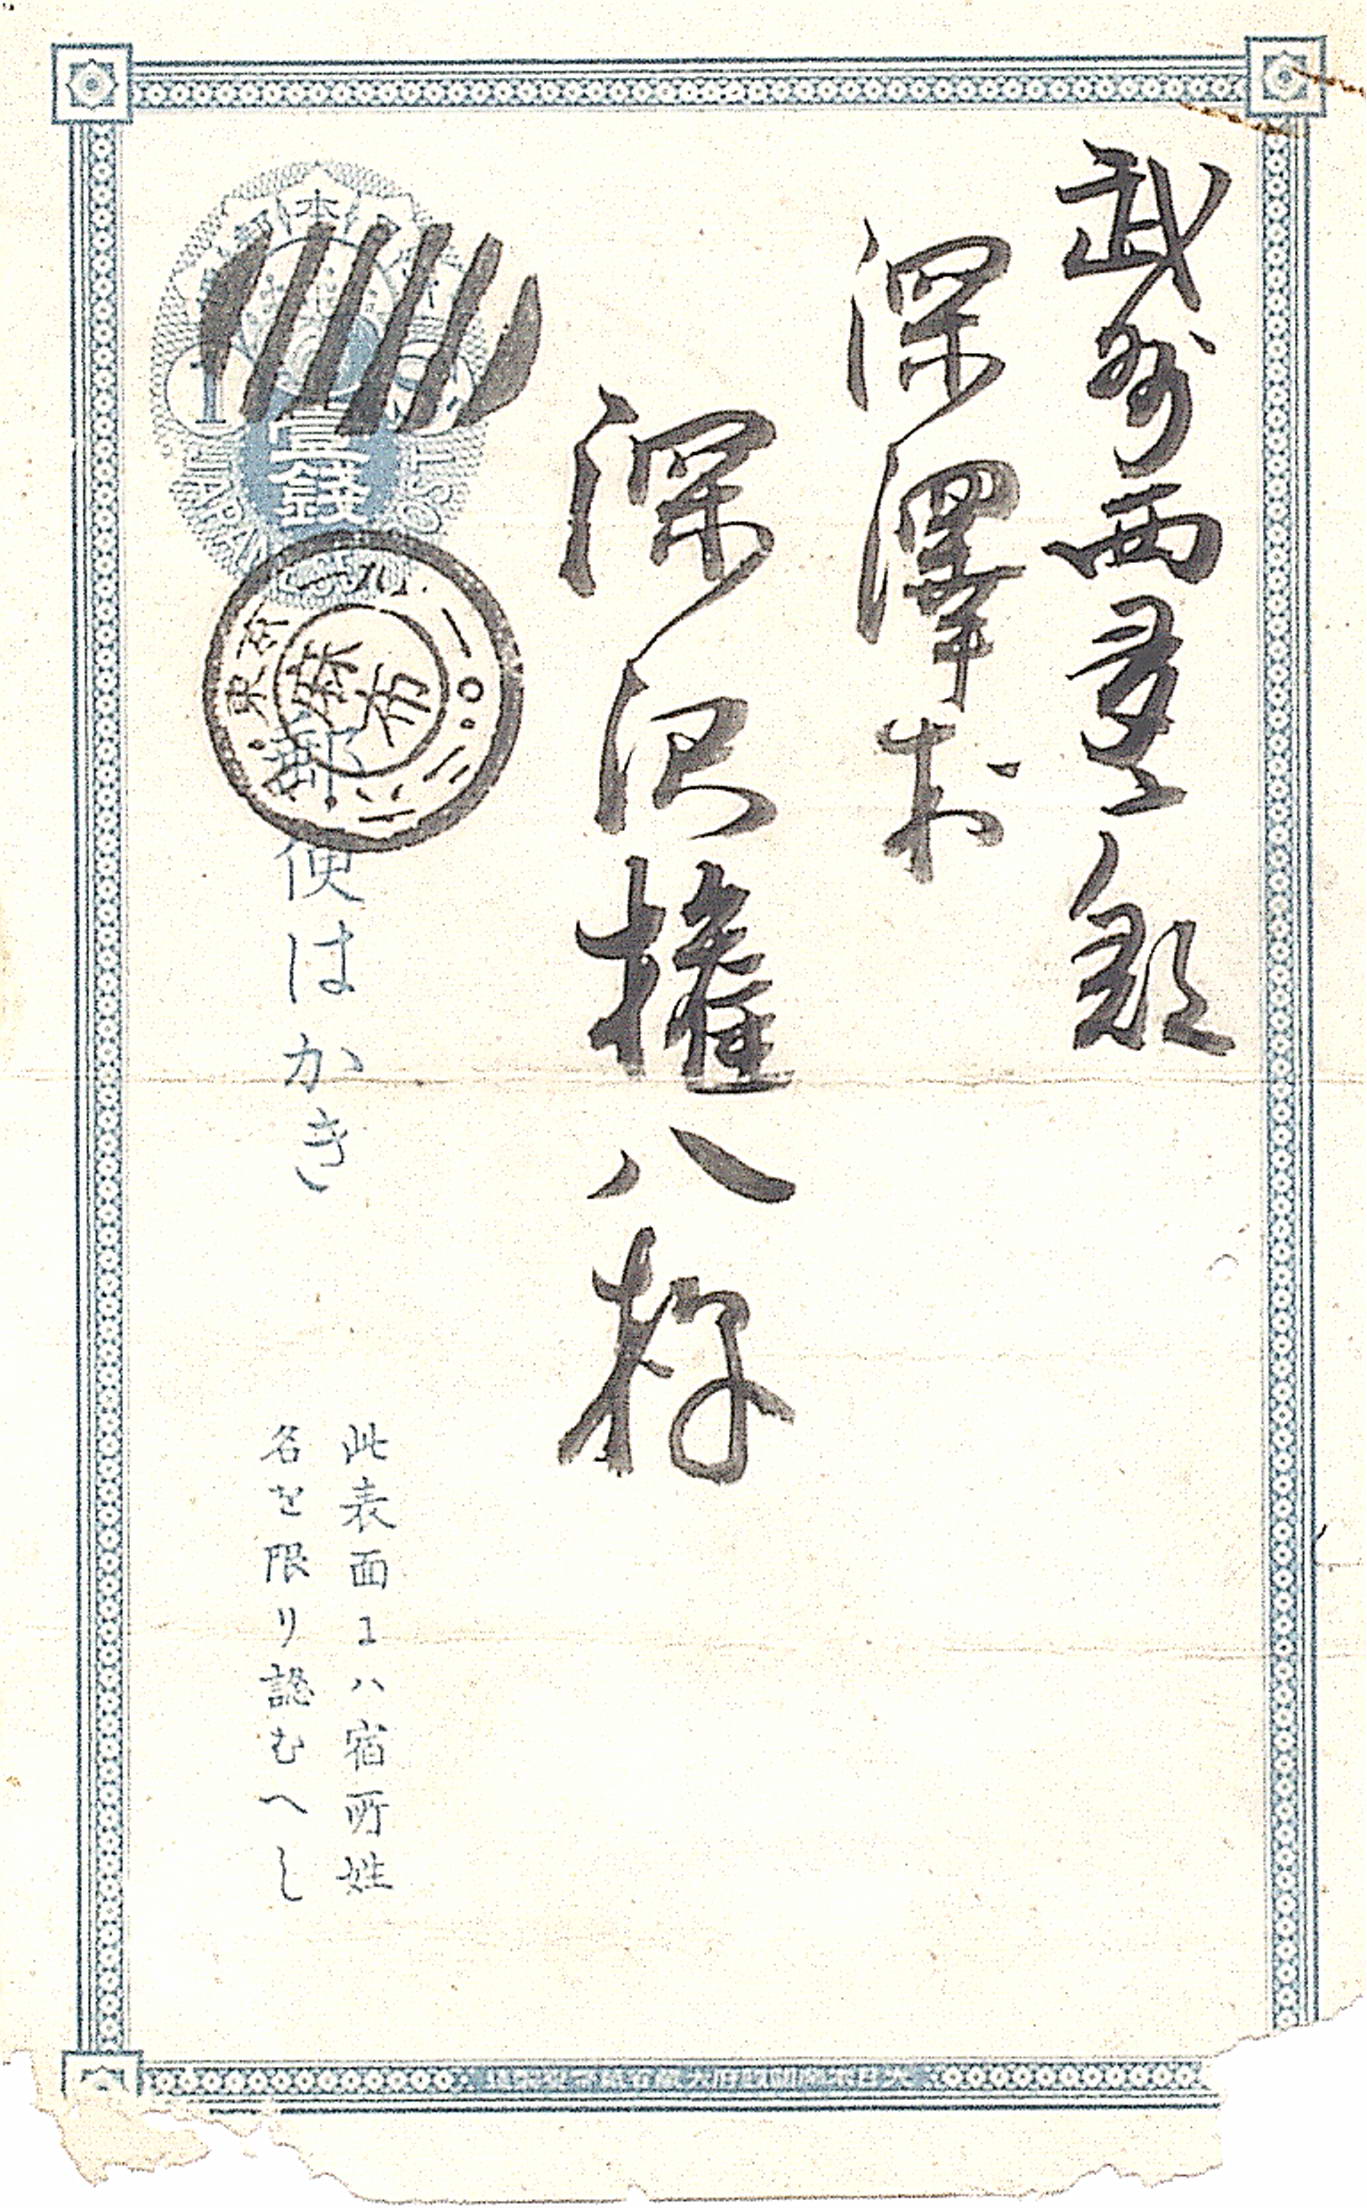 武州西多摩郡
深澤村
深沢権八様
壹錢
郵便はかき
東京
麻布
此表面ニハ宿所姓
名を限リ認むへし